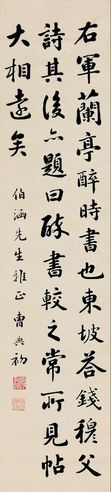 右軍蘭亭醉時書也東坡荅錢穆父
詩其後亦題曰醉書較之常所見帖
大相遠矣
伯涵先生雅正 曹典初